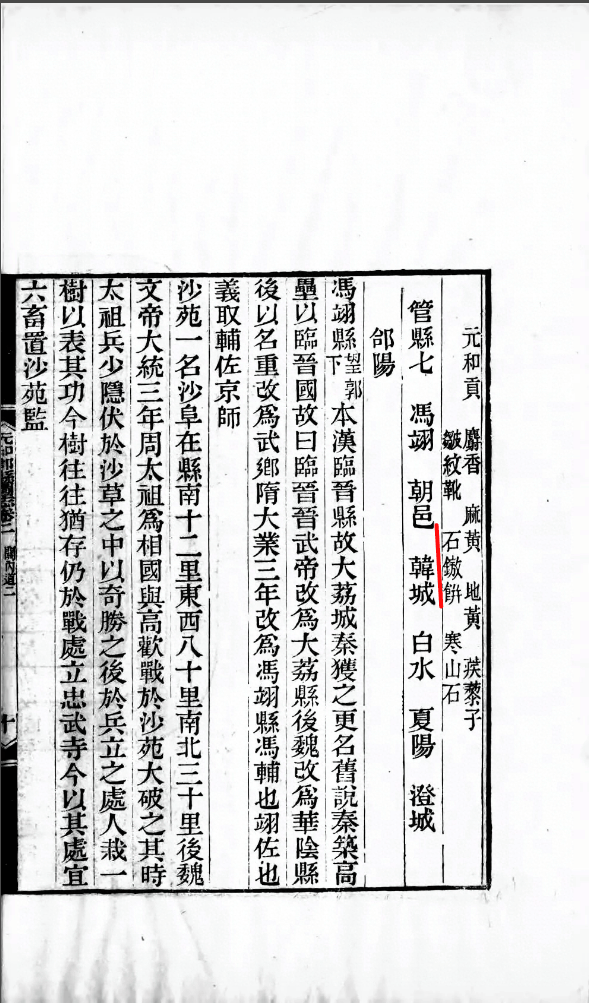 元和貢 麝香 麻黃 地黃 蒺藜子
皺紋靴 石鏾餅 寒山石
管縣七 馮翊 朝邑 韓城 白水 夏陽 澄城
郃陽
馮翊縣望郭下本漢臨晉縣故大荔城秦獲之更名舊說秦築高
壘以臨晉國故曰臨晉晉武帝改爲大荔縣後魏改爲華陰縣
後以名重改爲武鄉隋大業三年改爲馮翊縣馮輔也翊佐也
義取輔佐京師
沙苑一名沙阜在縣南十二里東西八十里南北三十里後魏
文帝大統三年周太祖爲相國與高歡戰於沙苑大破之其時
太祖兵少隱伏於沙草之中以奇勝之後於兵立之處人栽一
樹以表其功今樹往往猶存仍於戰處立忠武寺今以其處宜
六畜置沙苑監
元和郡縣圖志卷二 關內道二 十